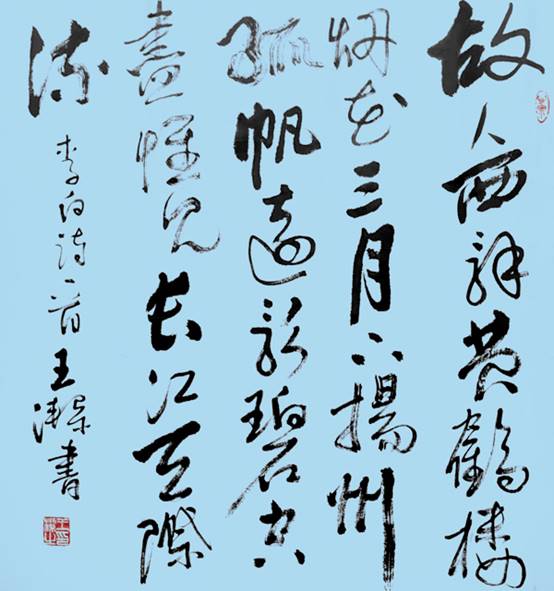 故人西辭黄鶴樓
烟花三月下揚州
孤帆遠影碧空
盡惟見長江天際
流
李白詩一首 王 書